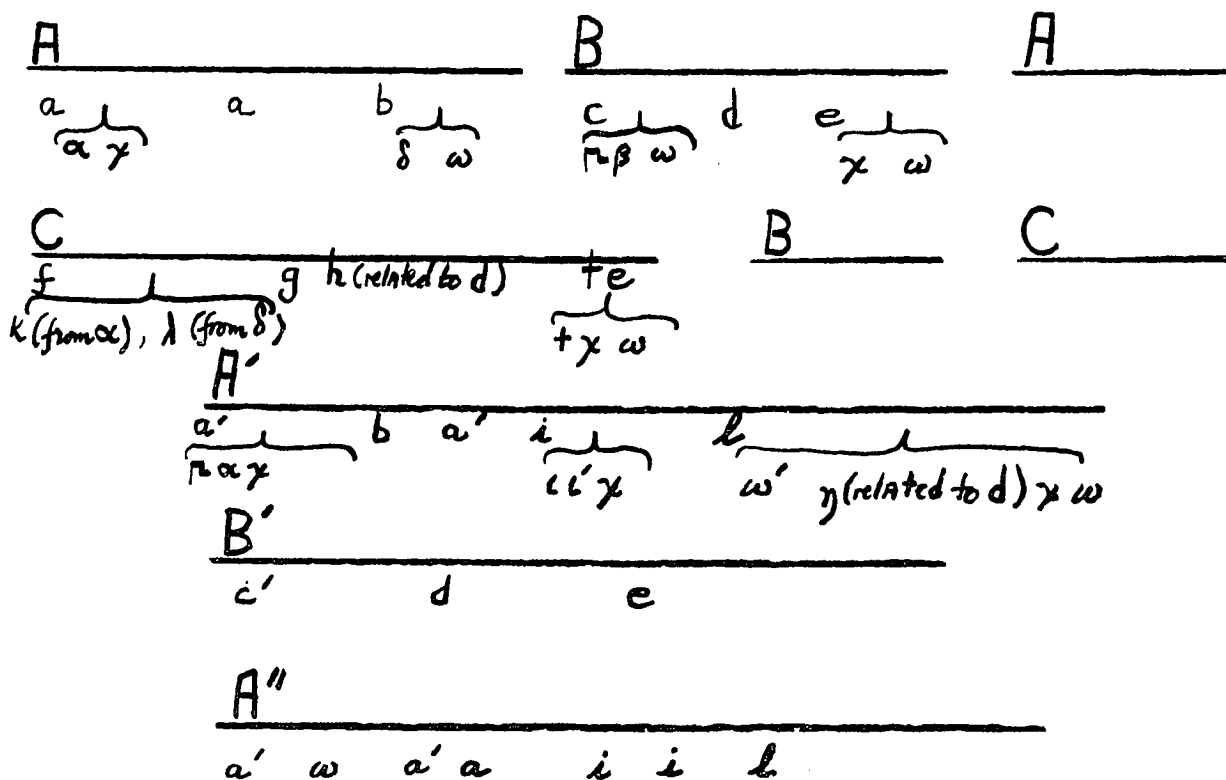 A B A
a a b c d e
α γ δ ω β ω γ ω
C B C
f g h (related to d) + e
κ (from α), λ (from δ) + γ ω
A'
a' b a' i l
α γ ι ι' γ ω' η (related to d) γ ω
B'
c' d e
A"
a' ω a' a i i l